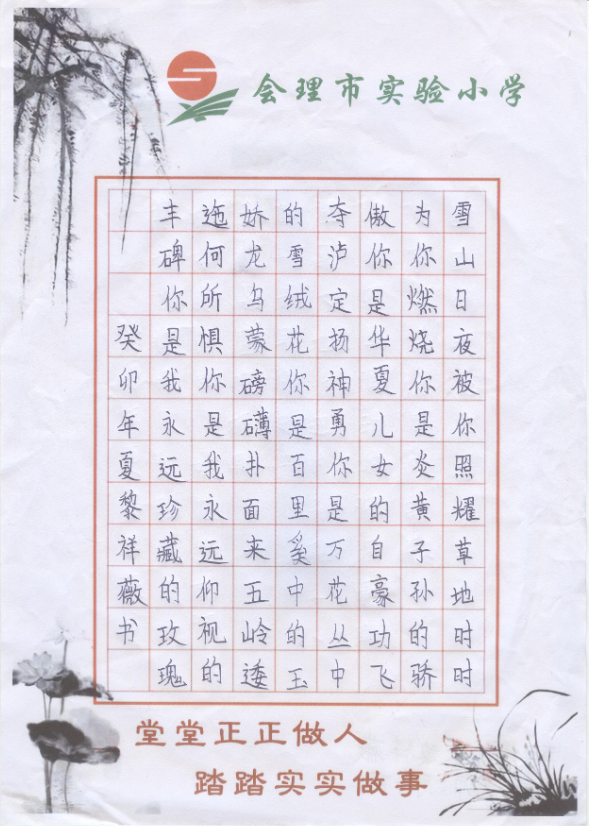 会理市实验小学
雪山日夜被你照耀草地时时
为你燃烧你是炎黄子孙的骄
傲你是华夏儿女的自豪功飞
夺泸定扬神勇你是万花丛中
的雪绒花你是百里奚中的玉
娇龙乌蒙磅礴扑面来五岭逶
迤何所惧你是我永远仰视的
丰碑你是我永远珍藏的玫瑰
癸卯年夏黎祥薇书
堂堂正正做人
踏踏实实做事